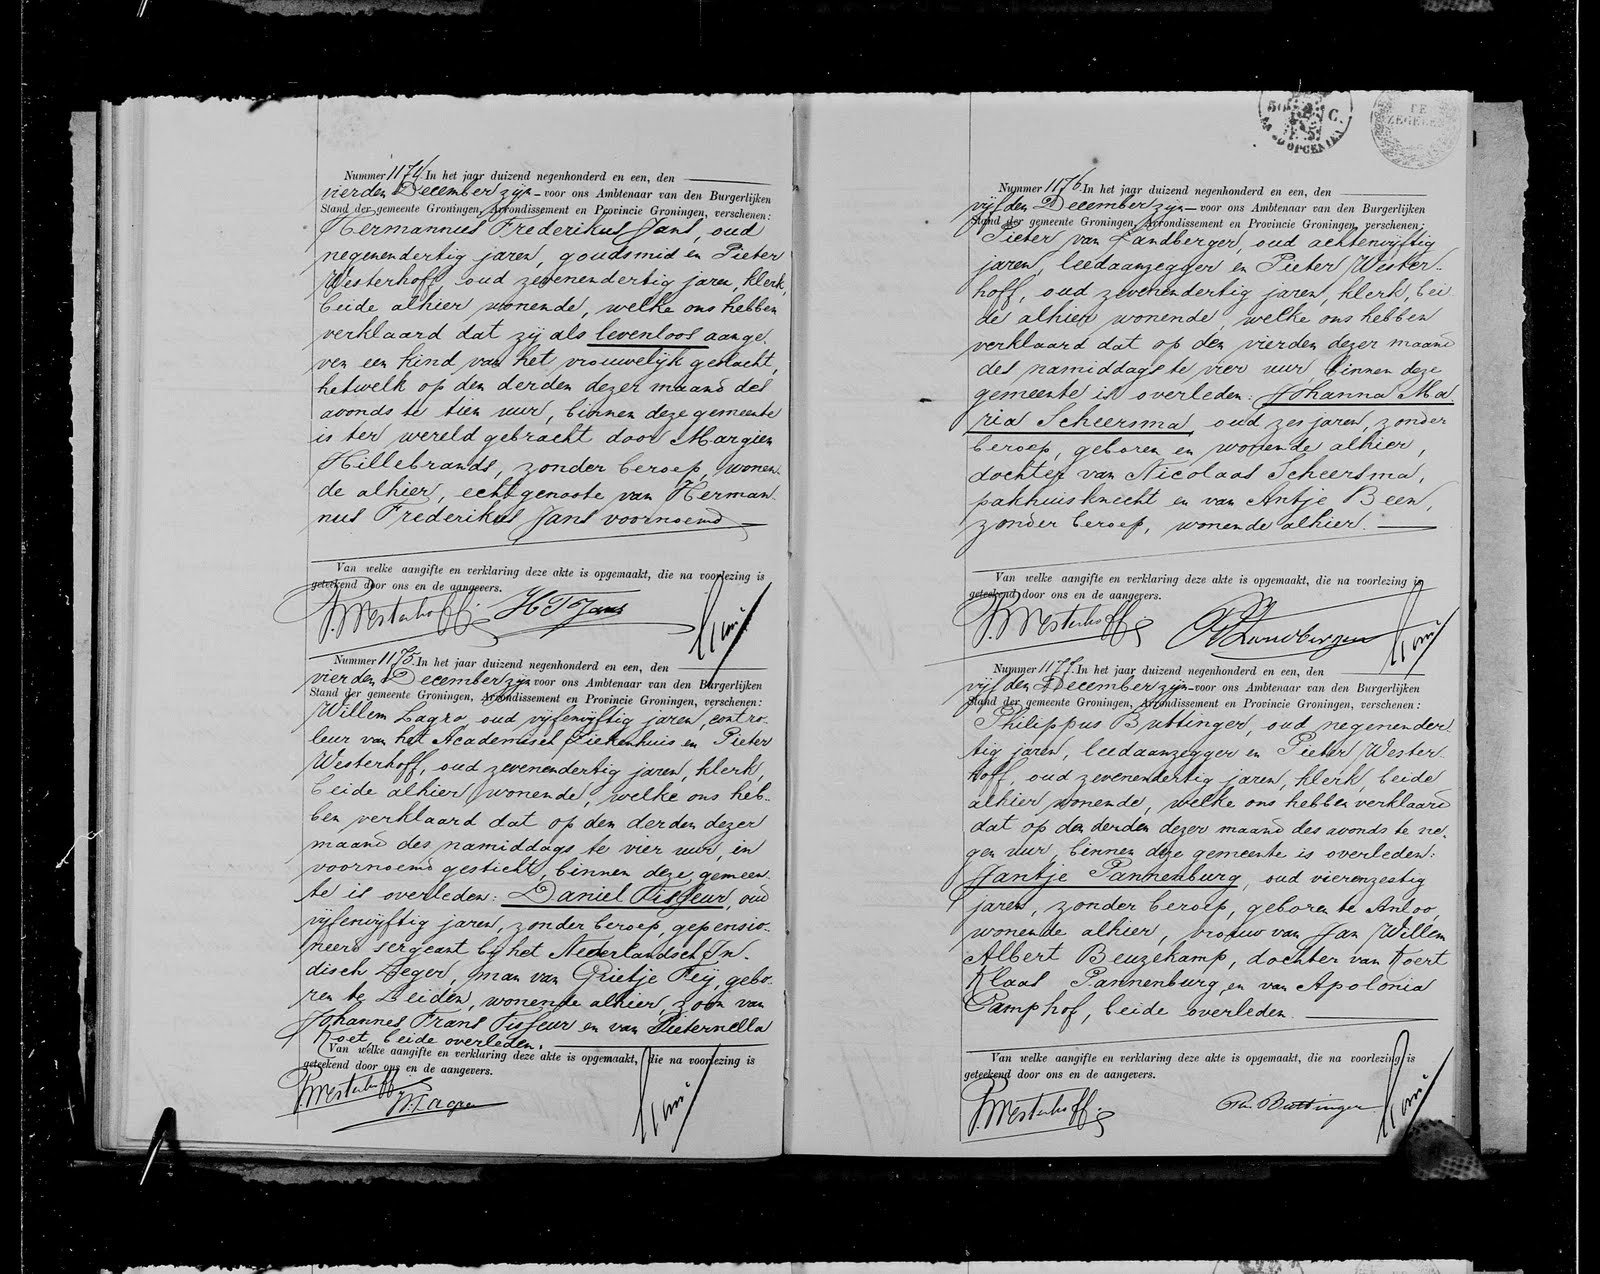 Nummer 1174. In het jaar duizend negenhonderd en een, den
vierden December zijn voor ons Ambtenaar van den Burgerlijken
Stand der gemeente Groningen, Arrondissement en Provincie Groningen, verschenen:
Hermannus Frederikus Jans, oud
negenendertig jaren, goudsmid en Pieter
Westerhoff, oud zevenendertig jaren, klerk,
beide alhier wonende, welke ons hebben
verklaard dat zij als levenloos aange-
ven een kind van het vrouwelijk geslacht,
hetwelk op den derden dezer maand des
avonds te tien uur, binnen deze gemeente
is ter wereld gebracht door Margien
Hillebrands, zonder beroep, wonen-
de alhier, echtgenoote van Herman-
nus Frederikus Jans voornoemd
Van welke aangifte en verklaring deze akte is opgemaakt, die na voorlezing is
geteekend door ons en de aangevers.
P. Westerhoff. H F Jans
Nummer 1175. In het jaar duizend negenhonderd en een, den
vierden December zijn voor ons Ambtenaar van den Burgerlijken
Stand der gemeente Groningen, Arrondissement en Provincie Groningen, verschenen:
Willem Lagro, oud vijfenvijftig jaren, contro-
leur van het Academisch Ziekenhuis en Pieter
Westerhoff, oud zevenendertig jaren, klerk,
beide alhier wonende, welke ons heb-
ben verklaard dat op den derden dezer
maand des namiddags te vier uur, in
voornoemd gesticht, binnen deze gemeen-
te is overleden: Daniel Fisfeur, oud
vijfenvijftig jaren, zonder beroep, gepensio-
neerd sergeant bij het Nederlandsch In-
disch Leger, man van Grietje Reij, gebo-
ren te Leiden, wonende alhier, zoon van
Johannes Frans Fisfeur en van Pieternella
Koet, beide overleden.
Van welke aangifte en verklaring deze akte is opgemaakt, die na voorlezing is
geteekend door ons en de aangevers.
P. Westerhoff. W. Lagro
50 C.
OPCENTEN
TE
ZEGELEN
Nummer 1176. In het jaar duizend negenhonderd en een, den
vijfden December zijn voor ons Ambtenaar van den Burgerlijken
Stand der gemeente Groningen, Arrondissement en Provincie Groningen, verschenen:
Pieter van Zandberger, oud achtenvijftig
jaren, leedaanzegger en Pieter Wester-
hoff, oud zevenendertig jaren, klerk, bei-
de alhier wonende, welke ons hebben
verklaard dat op den vierden dezer maand
des namiddags te vier uur binnen deze
gemeente is overleden: Johanna Ma
ria Scheersma, oud zes jaren, zonder
beroep, geboren en wonende alhier,
dochter van Nicolaas Scheersma,
pakhuisknecht en van Antje Been,
zonder beroep, wonende alhier.
Van welke aangifte en verklaring deze akte is opgemaakt, die na voorlezing is
geteekend door ons en de aangevers.
P. Westerhoff. P v Zandbergen
Nummer 1177. In het jaar duizend negenhonderd en een, den
vijfden December zijn voor ons Ambtenaar van den Burgerlijken
Stand der gemeente Groningen, Arrondissement en Provincie Groningen, verschenen:
Philippus Buttinger, oud negenender-
tig jaren, leedaanzegger en Pieter Wester-
hoff, oud zevenendertig jaren, klerk, beide
alhier wonende, welke ons hebben verklaard
dat op den derden dezer maand des avonds te ne-
gen uur, binnen deze gemeente is overleden:
Jantje Pannenburg, oud vierenzestig
jaren, zonder beroep, geboren te Anloo,
wonende alhier, vrouw van Jan Willem
Albert Beuzekamp, dochter van Koert
Klaas Pannenburg en van Apolonia
Camphof, beide overleden.
Van welke aangifte en verklaring deze akte is opgemaakt, die na voorlezing is
geteekend door ons en de aangevers.
P. Westerhoff. Ph. Buttinger